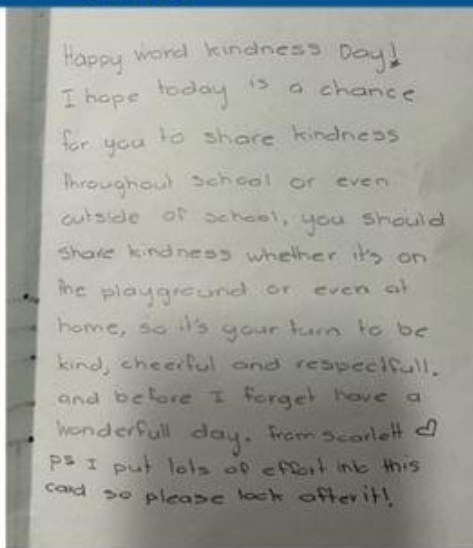 Happy word kindness Day!
I hope today is a chance
for you to share kindness
throughout school or even
outside of school, you should
share kindness whether it's on
the playground or even at
home, so it's your turn to be
kind, cheerful and respectfull.
and before I forget have a
wonderfull day. from scarlett ♡
ps I put lots of effort into this
card so please look after it!